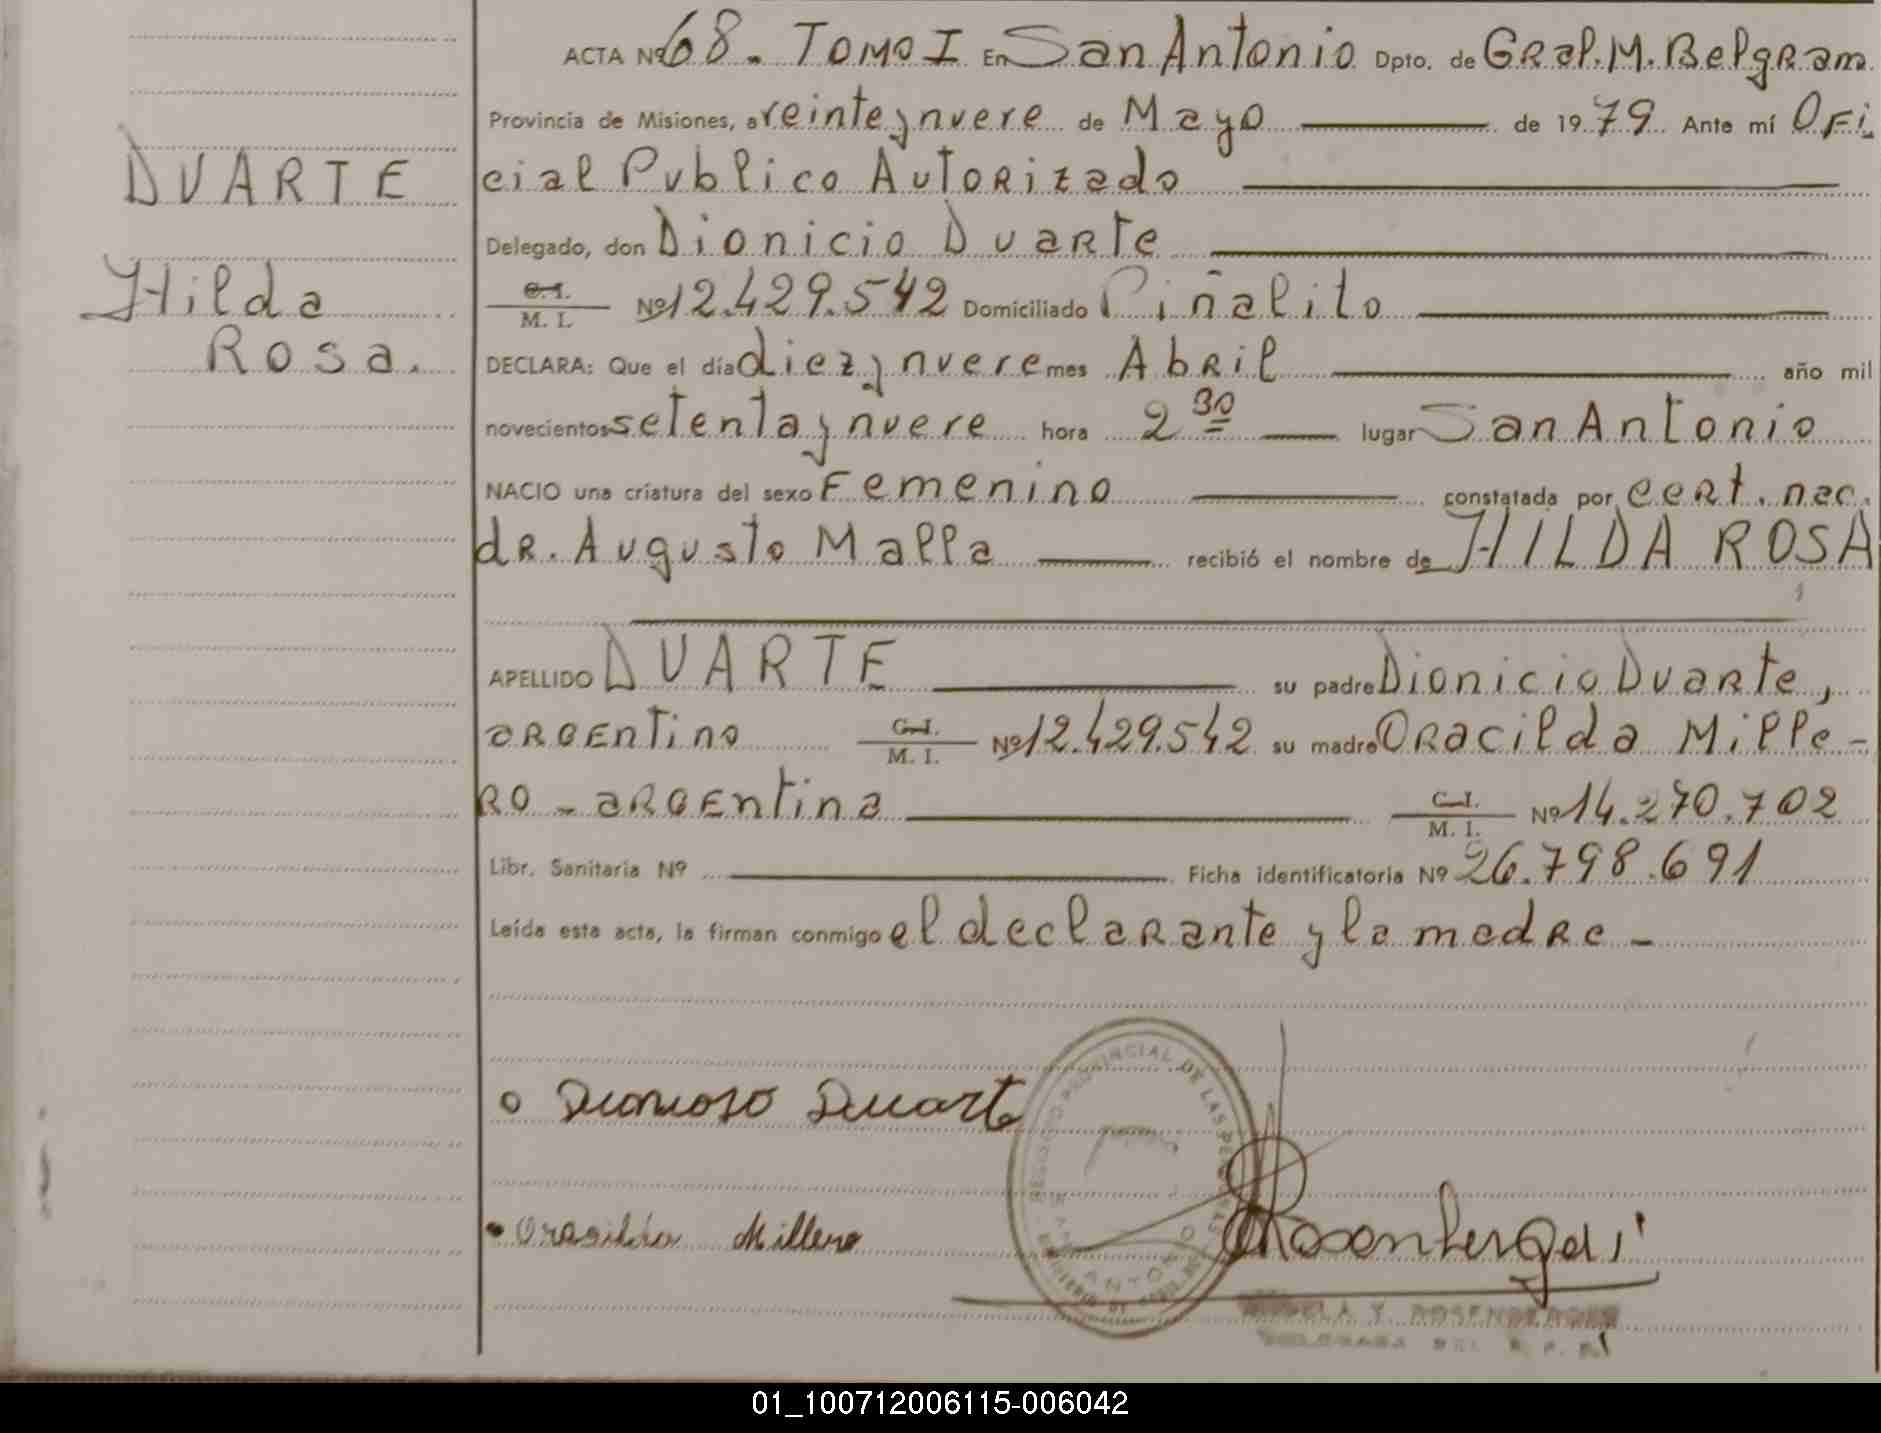 DUARTE
Hilda
Rosa.
ACTA Nº 68. TOMO I En San Antonio Dpto. de GRal. M. BelgRam
Provincia de Misiones, a veinte y nueve de Mayo de 1979. Ante mí OFi
cial Publico AutoRizado
Delegado, don Dionicio Duarte
C. I.
M. I. Nº 12.429.542 Domiciliado Piñalito
DECLARA: Que el día diez y nueve mes Abril año mil
novecientos setenta y nueve hora 2 30 lugar San Antonio
NACIO una criatura del sexo Femenino constatada por cert. nac.
dR. Augusto Malla recibió el nombre de HILDA ROSA
APELLIDO DUARTE su padre Dionicio Duarte,
aRGEntino C. I.
M. I. Nº 12.429.542 su madre ORacilda Mille-
RO - aRGEntina C. I.
M. I. Nº 14.270.702
Libr. Sanitaria Nº Ficha identificatoria Nº 26.798.691
Leída esta acta, la firman conmigo el declarante y la madre -
Duarte
Orasilda Millero
REGISTRO PROVINCIAL DE LAS PERSONAS
SAN ANTONIO
Y. ROSENBERGER
DELEGADA DEL R. P. P.
01_100712006115-006042